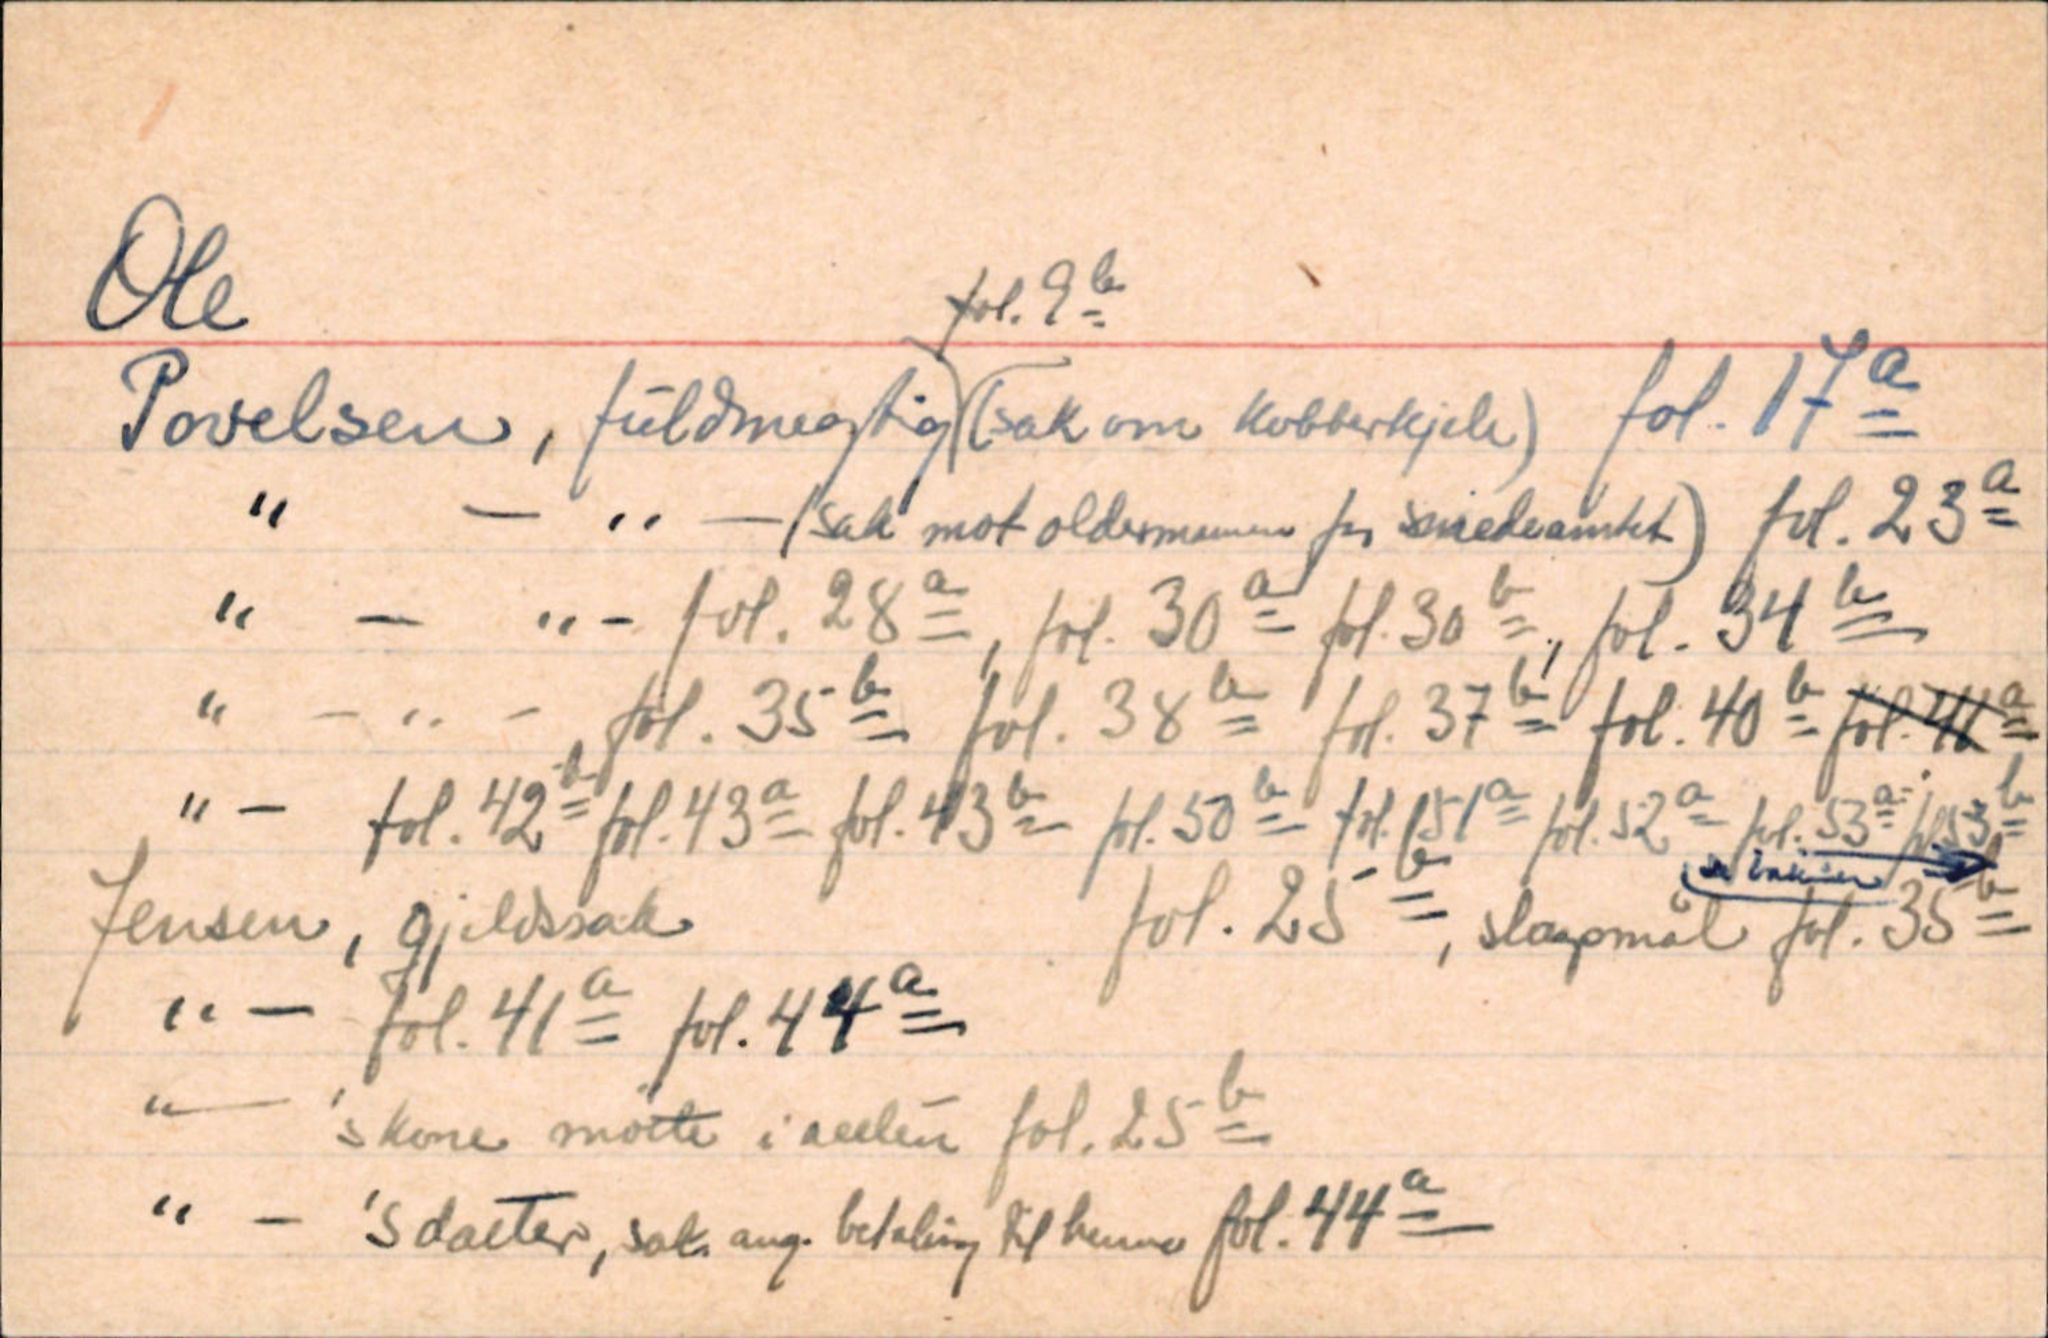 Ole
fol. 9b
Povelsen, fuldmegtig (sak om kobberkjele) fol. 17a
" — " — (sak mot oldermannen for smedeamtet) fol. 23a
" — " — fol. 28a, fol. 30a fol. 30b, fol. 34b
" — " — fol. 35b fol. 38b fol. 37b fol. 40b fol. 41a
" — fol. 42b fol. 43a fol. 43b fol. 50b fol. 51a fol. 52a fol. 53a fol. 53b
se bakside
Jensen, gjeldssak fol. 25b, slagsmål fol. 35b
" — fol. 41a fol. 44a
" — 's kone møtte i retten fol. 25b
" — 's datter, sak ang. betaling til henne fol. 44a